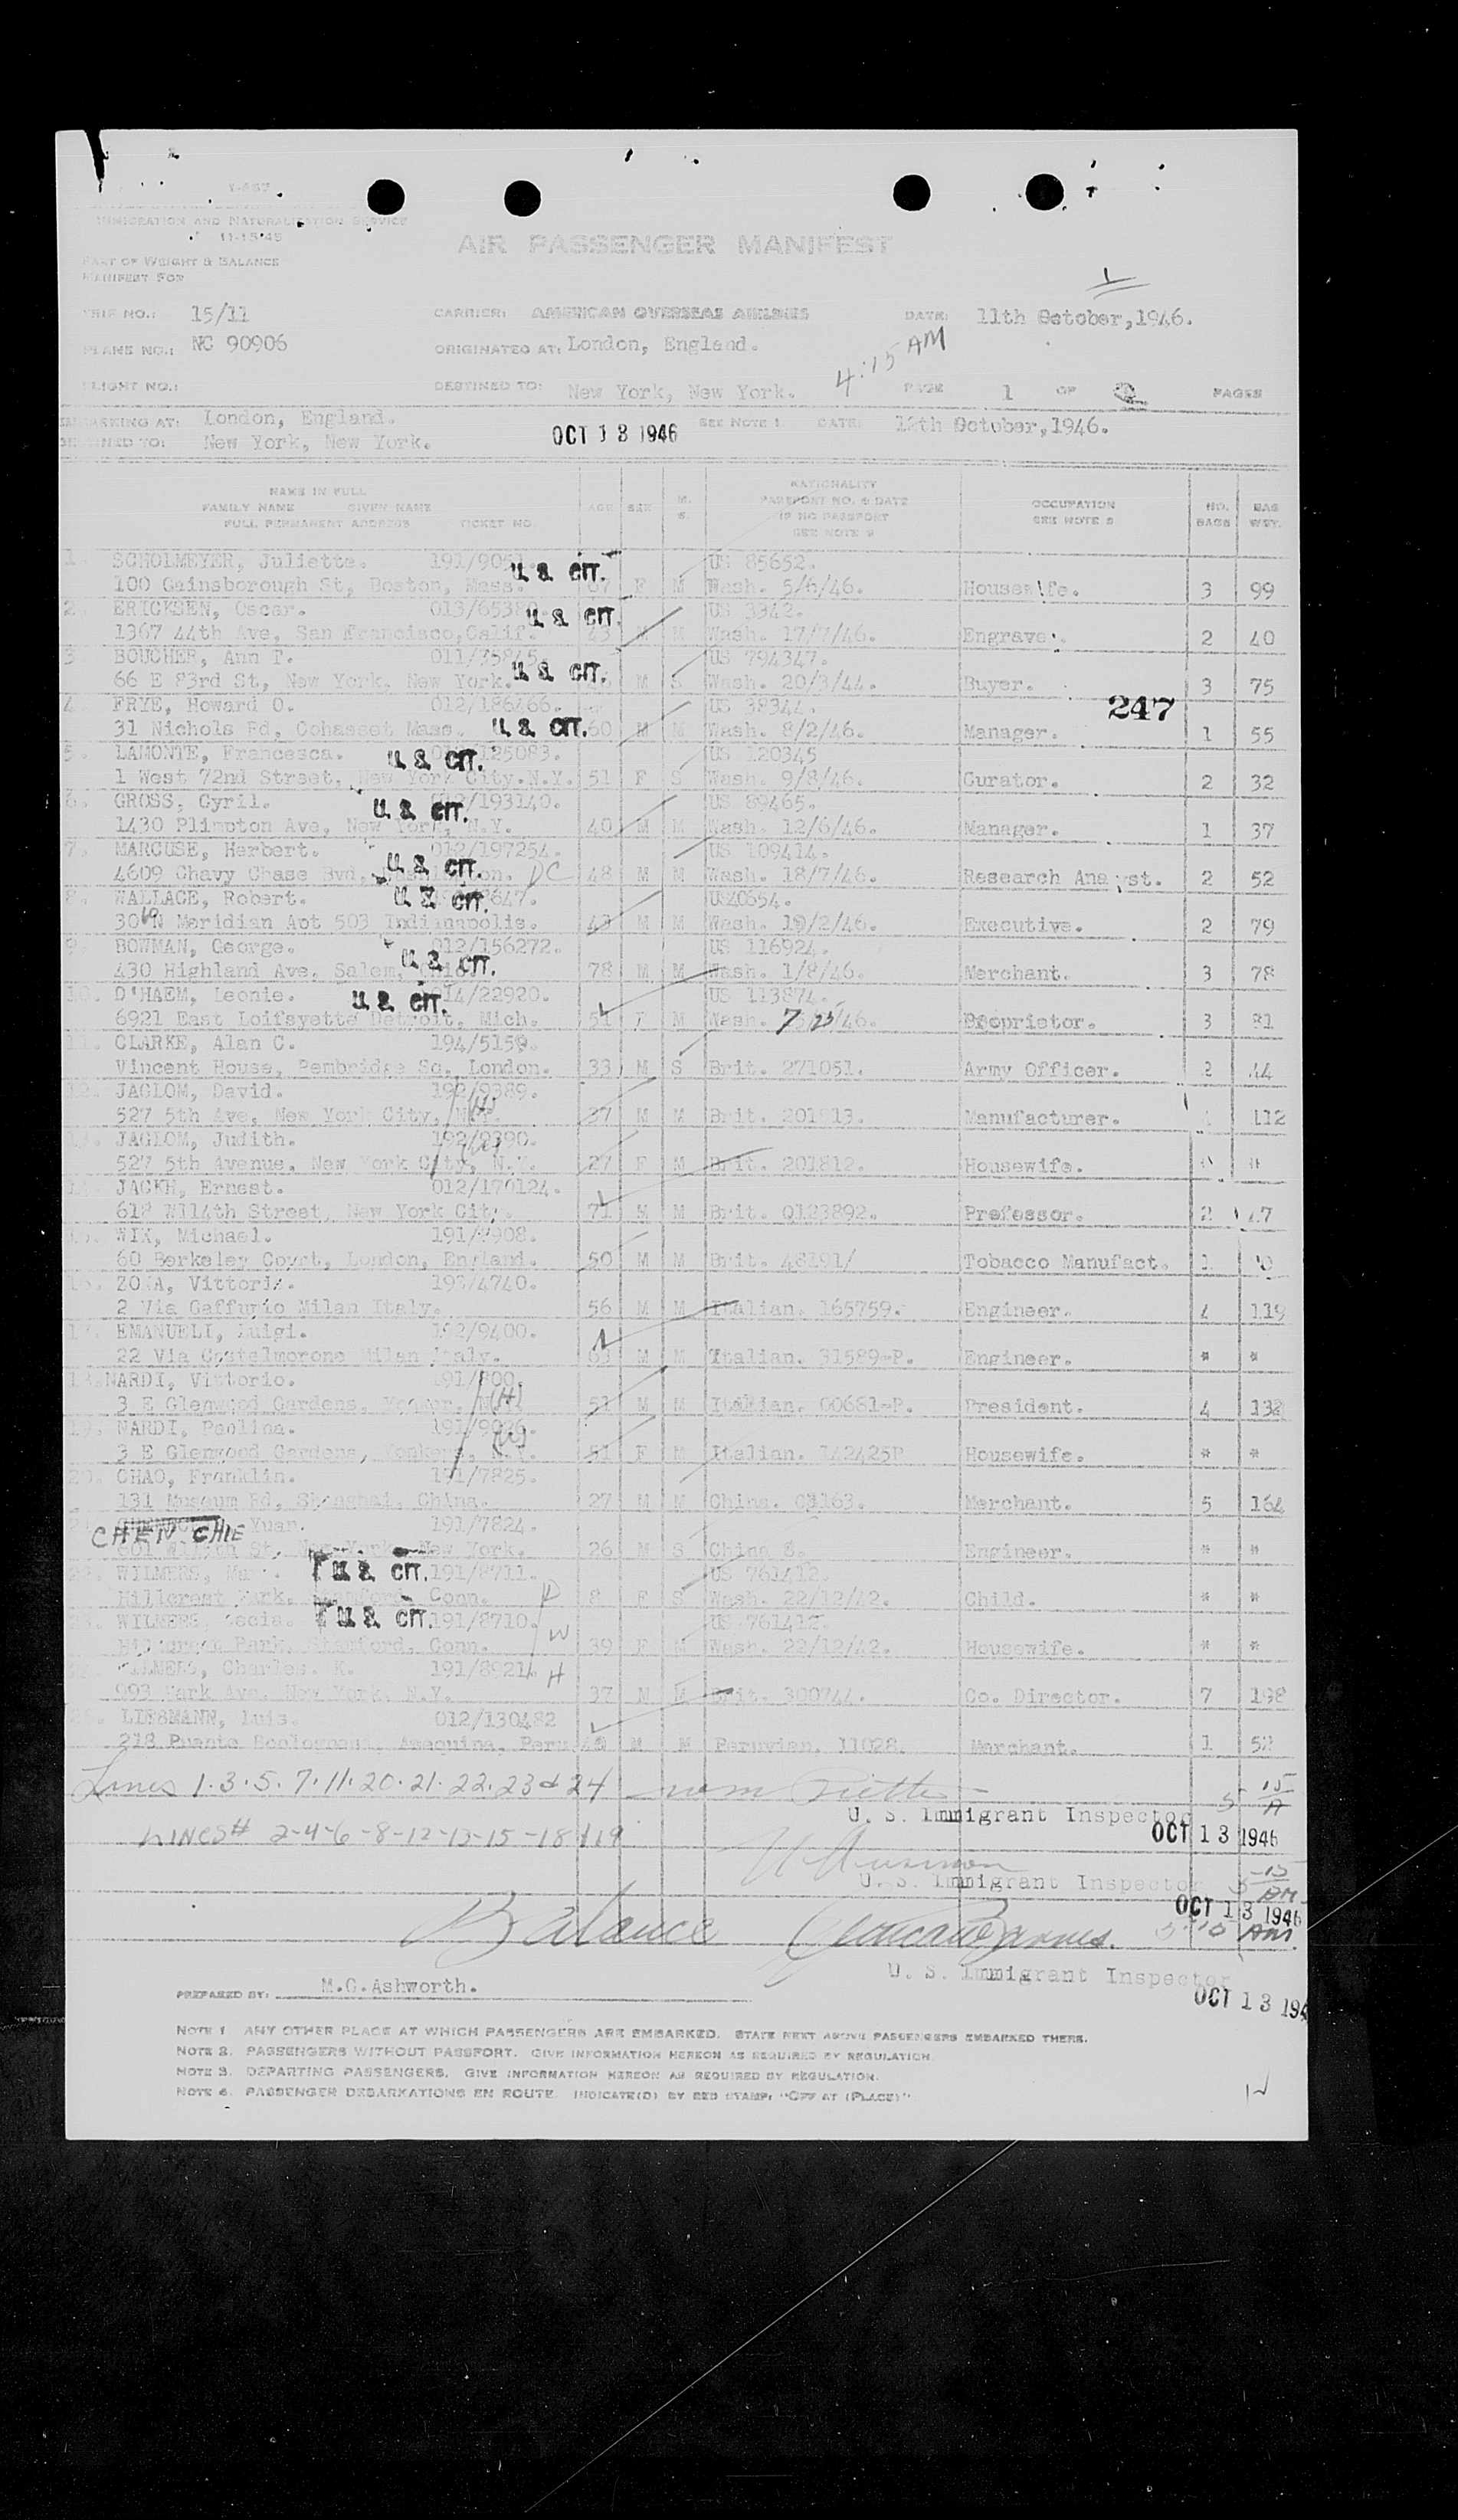 I-457
IMMIGRATION AND NATURALIZATION SERVICE
11-15-45
AIR PASSENGER MANIFEST
PART OF WEIGHT & BALANCE
MANIFEST FOR
TRIP NO.: 15/11 CARRIER: AMERICAN OVERSEAS AIRLINES DATE: 11th October, 1946.
PLANE NO.: NC 90906 ORIGINATED AT: London, England. 4:15 AM
FLIGHT NO.: DESTINED TO: New York, New York. PAGE 1 OF 2 PAGES
EMBARKING AT: London, England. SEE NOTE 1 DATE: 12th October, 1946.
DESTINED TO: New York, New York. OCT 13 1946
NAME IN FULL
FAMILY NAME GIVEN NAME
FULL PERMANENT ADDRESS TICKET NO. AGE SEX M. S. NATIONALITY PASSPORT NO. & DATE IF NO PASSPORT SEE NOTE 2 OCCUPATION SEE NOTE 3 NO. BAGS BAG WGT.
1. SCHOLMEYER, Juliette. 191/9051 u. s. cit. US 85652.
100 Gainsborough St, Boston, Mass. 67 F M Wash. 5/6/46. Housewife. 3 99
2. ERICKSEN, Oscar. u. s. cit. US 3342.
1367 44th Ave, San Francisco, Calif. 43 M M Wash. 17/7/46. Engraver. 2 40
3. BOUCHER, Ann T. 011/35845. u. s. cit. US 794347.
66 E 83rd St, New York, New York. M S Wash. 20/3/44. Buyer. 3 75
247
4. FRYE, Howard O. 012/186466. US 38344.
31 Nichols Rd, Cohasset Mass. u. s. cit. 60 M M Wash. 8/2/46. Manager. 1 55
5. LAMONTE, Francesca. 125083. u. s. cit. US 120345
1 West 72nd Street, New York City. N.Y. 51 F S Wash. 9/8/46. Curator. 2 32
6. GROSS, Cyril. 012/193140. u. s. cit. US 89465.
1430 Plimpton Ave, New York, N.Y. 40 M M Wash. 12/6/46. Manager. 1 37
7. MARCUSE, Herbert. 012/197254. u. s. cit. US 109414.
4609 Chavy Chase Bvd, Washington. DC 48 M M Wash. 18/7/46. Research Analyst. 2 52
8. WALLACE, Robert. u. s. cit. US20654.
30 N Meridian Apt 503 Indianapolis. 43 M M Wash. 19/2/46. Executive. 2 79
9. BOWMAN, George. 012/156272. US 116924.
430 Highland Ave, Salem, Ohio. u. s. cit. 78 M M Wash. 1/8/46. Merchant. 3 78
10. D'HAEM, Leonie. u. s. cit. 014/22920. US 113874.
6921 East Loifayette Detroit, Mich. 51 F M Wash. 7/23/46. Proprietor. 3 81
11. CLARKE, Alan C. 194/5159.
Vincent House, Pembridge Sq., London. 33 M S Brit. 271051. Army Officer. 2 44
12. JAGLOM, David. 192/9389.
527 5th Ave, New York City, N.Y. (H) 37 M M Brit. 201813. Manufacturer. 4 112
13. JAGLOM, Judith. 192/9390.
527 5th Avenue, New York City, N.Y. (W) 27 F M Brit. 201812. Housewife. * *
14. JACKH, Ernest. 012/170124.
618 W114th Street, New York City. 71 M M Brit. Q123892. Professor. 2 47
15. WIX, Michael. 191/8908.
60 Berkeley Covrt, London, England. 50 M M Brit. 48191/ Tobacco Manufact. 1
16. ZOJA, Vittorio. 193/4740.
2 Via Gaffurio Milan Italy. 56 M M Italian. 165759. Engineer. 4 119
17. EMANUELI, Luigi. 192/9400.
22 Via Castelmorone Milan Italy. 63 M M Italian. 31589-P. Engineer. * *
18. NARDI, Vittorio.
3 E Glenwood Gardens, Yonker, N.Y. (H) 51 M M Italian. 00681-P. President. 4 132
19. NARDI, Paolina. 191/9026.
3 E Glenwood Gardens, Yonkers, N.Y. (W) 51 F M Italian. 142425P Housewife. * *
20. CHAO, Franklin. 191/7825.
131 Museum Rd, Shanghai, China. 27 M M China. C3163. Merchant. 5 164
21. CHEN CHIE Yuan. 191/7824.
New York. 26 M S China S. Engineer. * *
22. WILMERS, Mary. u. s. cit. 191/8711. US 761412.
Hillcrest Park, Stamford, Conn. D 8 F S Wash. 22/12/42. Child. * *
23. WILMERS, Cecia. u. s. cit. 191/8710. US 761412.
Hillcrest Park, Stamford, Conn. W 39 F M Wash. 22/12/42. Housewife. * *
WILMERS, Charles. K. 191/8921. H
993 Park Ave, New York, N.Y. 37 M M Brit. 300744. Co. Director. 7 198
25. LIEBMANN, Luis. 012/130482
M M Peruvian. 11028. Merchant. 1 52
Lines 1. 3. 5. 7. 11. 20. 21. 22. 23 & 24
U. S. Immigrant Inspector
OCT 13 1946
LINES# 2-4-6-8-12-13-15-18 & 19
U. S. Immigrant Inspector
OCT 13 1946
Balance
U. S. Immigrant Inspector
OCT 13 194
PREPARED BY: M.C.Ashworth.
NOTE 1 ANY OTHER PLACE AT WHICH PASSENGERS ARE EMBARKED. STATE NEXT ABOVE PASSENGERS EMBARKED THERE.
NOTE 2. PASSENGERS WITHOUT PASSPORT. GIVE INFORMATION HEREON AS REQUIRED BY REGULATION.
NOTE 3. DEPARTING PASSENGERS. GIVE INFORMATION HEREON AS REQUIRED BY REGULATION.
NOTE 4. PASSENGER DEBARKATIONS EN ROUTE. INDICATE(D) BY RED STAMP: "OFF AT (PLACE)"